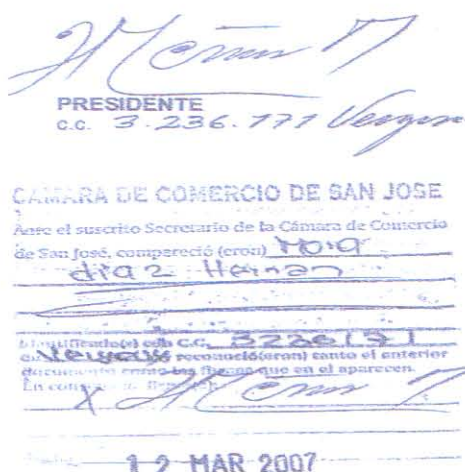 PRESIDENTE
C.C. 3.236.171
CAMARA DE COMERCIO DE SAN JOSE
Ante el suscrito Secretario de la Cámara de Comercio
de San José, compareció (eron) Mora
diaz Hernan
Identificado(s) con C.C. 3236171
reconoció(eron) tanto el anterior
documento como las firmas que en el aparecen.
En
X
12 MAR 2007